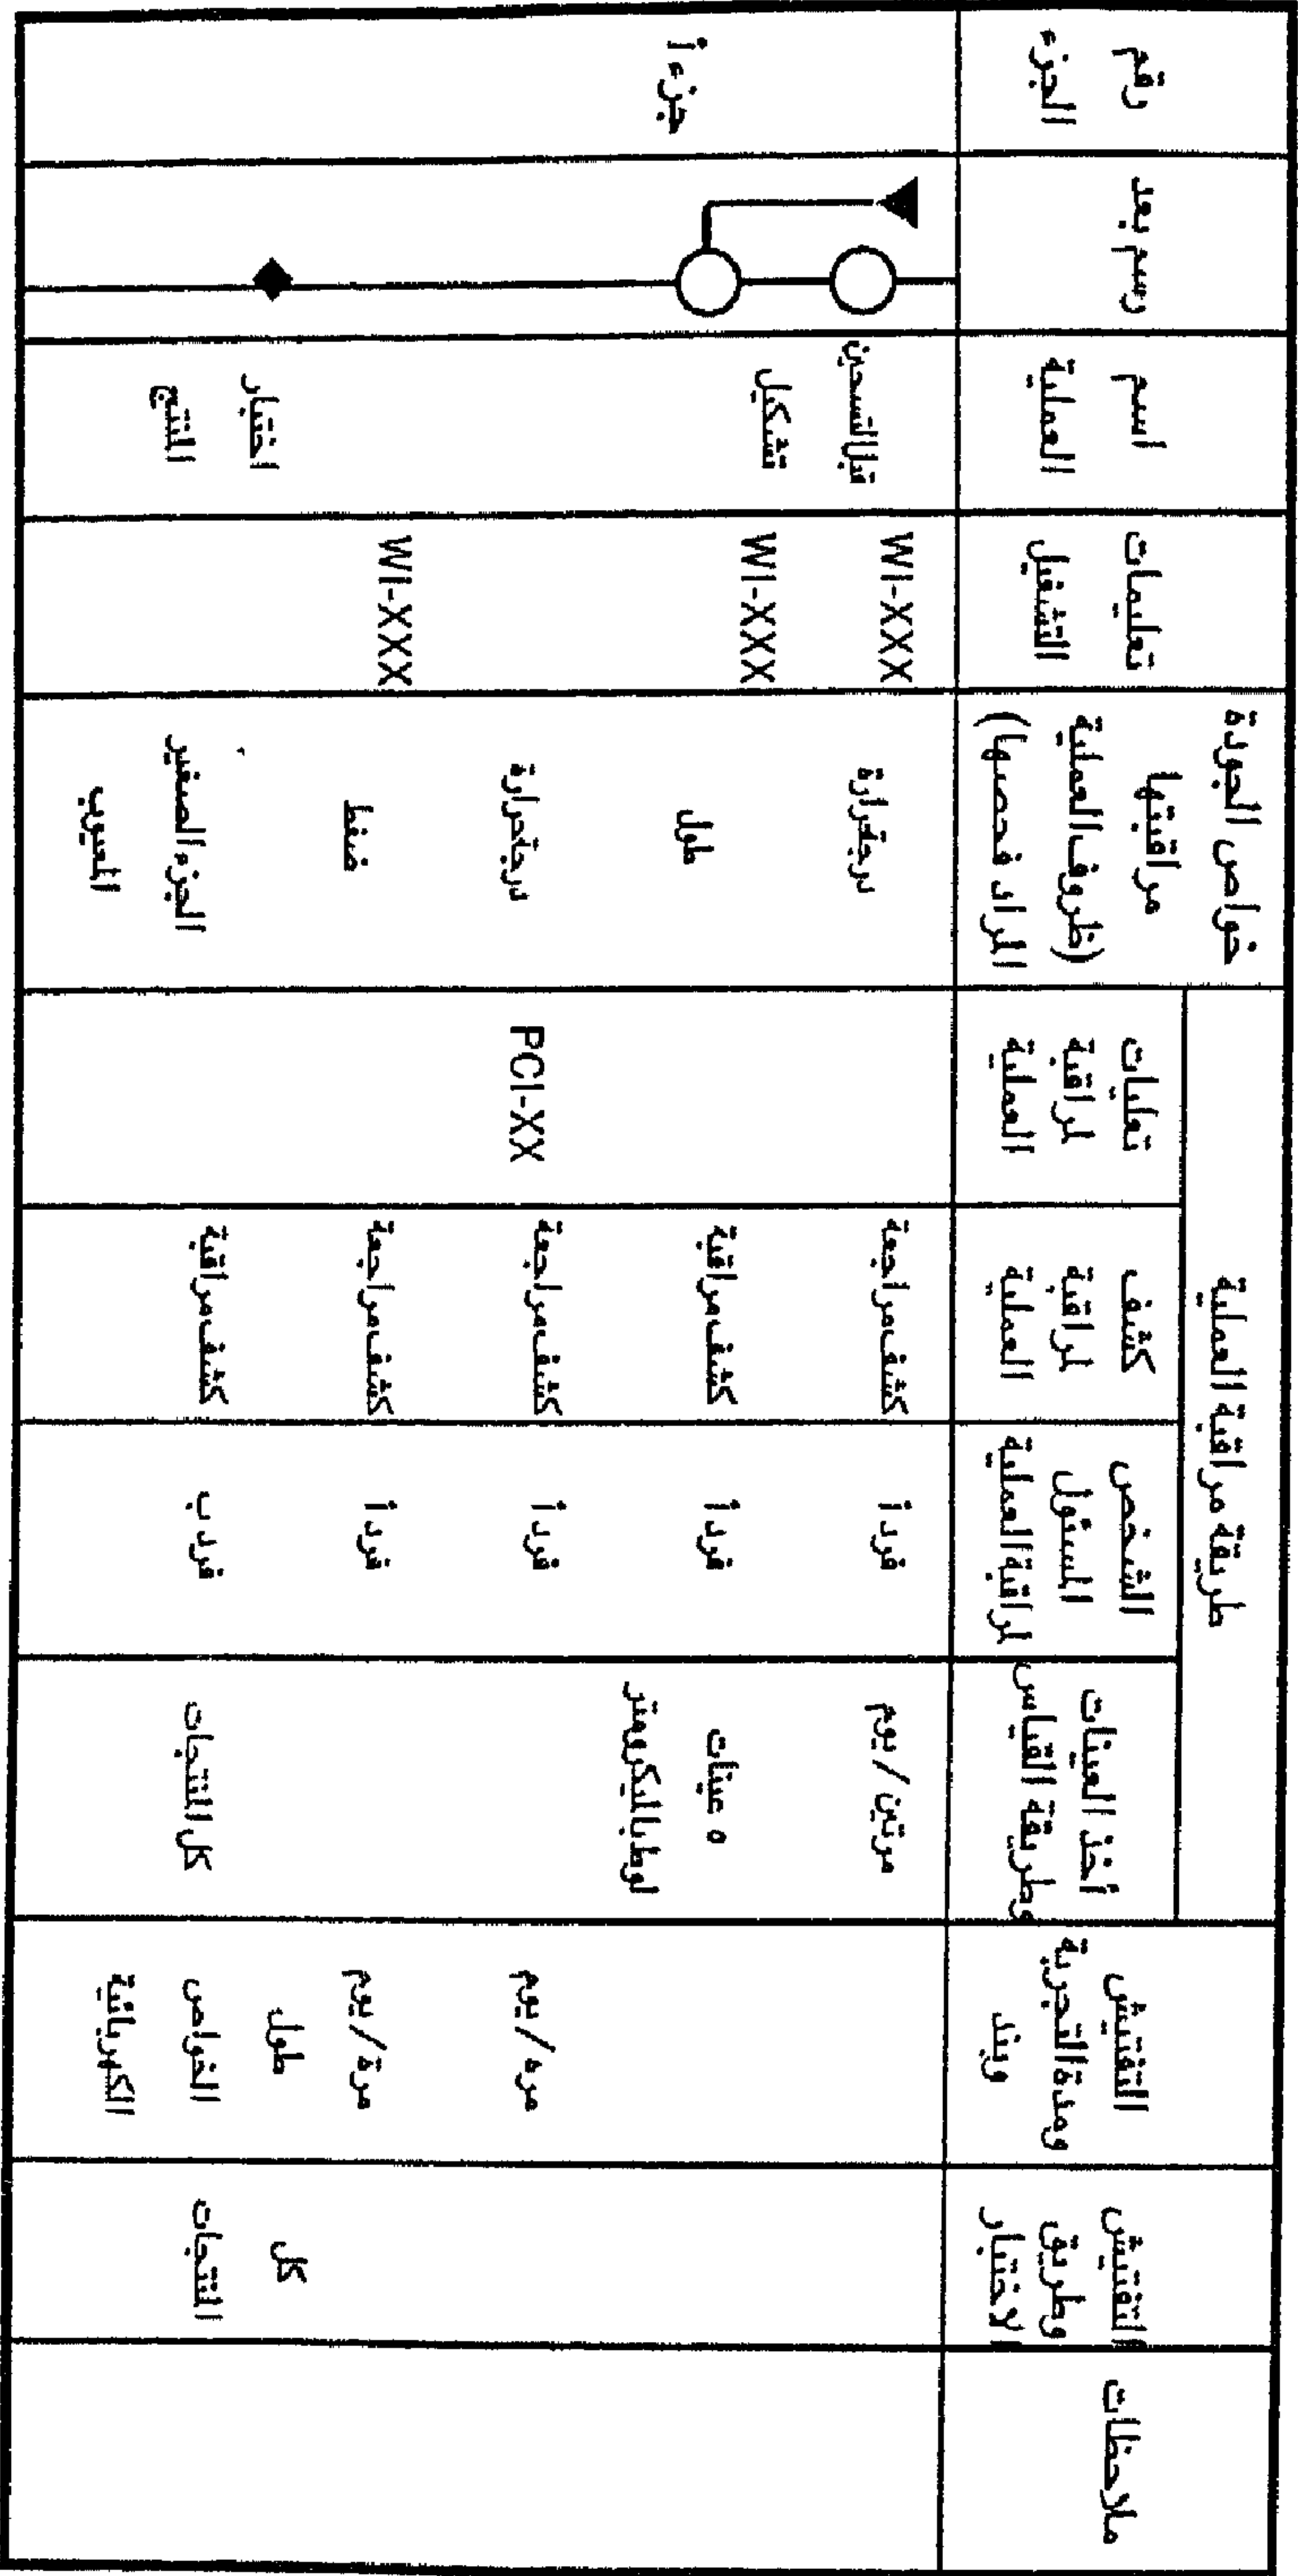 رقم
الجزء
رسم بعد
اسم
العملية
تعليمات
التشغيل
خواص الجودة
مراقبتها
(ظروف العملية
المراد فحصها)
طريقة مراقبة العملية
تعليات
لمراقبة
العملية
كشف
لمراقبة
العملية
الشخص
المسئول
لمراقبة العملية
أخذ العينات
وطريقة القياس
التفتيش
ومدة التجربة
وبند
التفتيش
وطريق
الاختبار
ملاحظات
جزء أ
قبل التسخين
WI-XXX
درجة حرارة
كشف مراجعة
فرد أ
مرتين / يوم
تشكيل
WI-XXX
طول
كشف مراقبة
فرد أ
٥ عينات
لوط بالميكرومتر
درجة حرارة
PCI-XX
كشف مراجعة
فرد أ
مره / يوم
WI-XXX
ضغط
كشف مراجعة
فرد أ
مرة / يوم
اختبار
المنتج
الجزء الصغير
المعيوب
كشف مراقبة
فرد ب
كل المنتجات
طول
الخواص
الكهربائية
كل
المنتجات